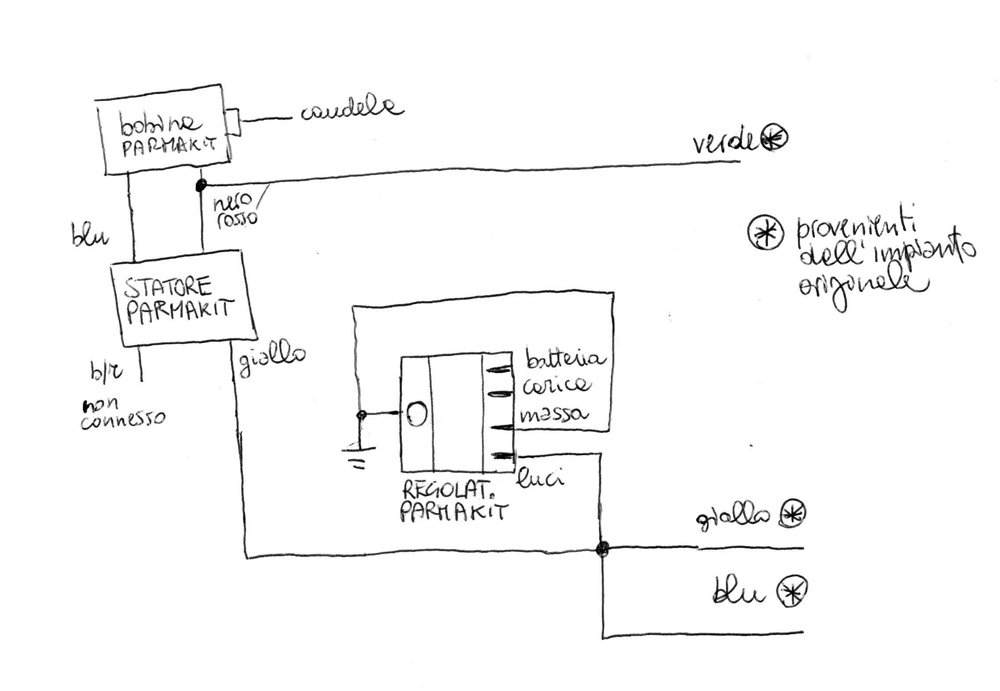 bobina
PARMAKIT
candela
verde
nero
rosso
blu
provenienti
dell'impianto
originale
STATORE
PARMAKIT
giallo
b/r
non
connesso
batteria
carica
massa
luci
REGOLAT.
PARMAKIT
giallo
blu